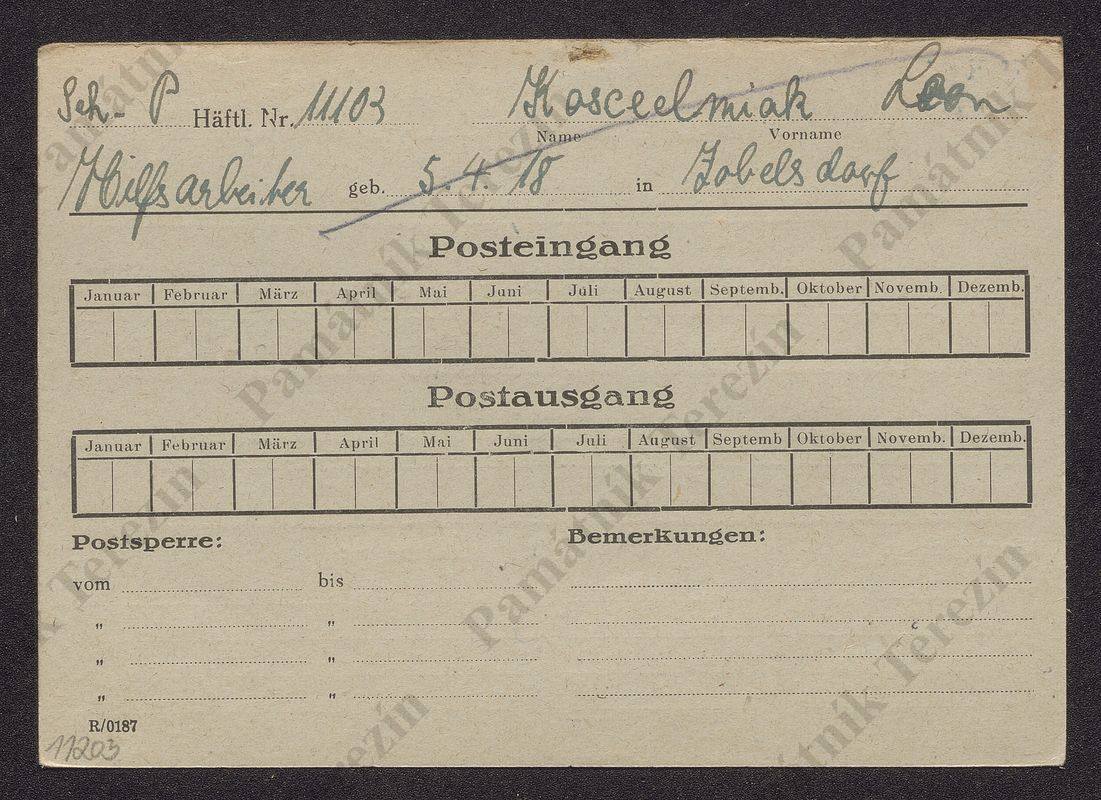 Sch - P Häftl. Nr. 11103 Kosceelmiak Leon
Name Vorname
Hilfsarbeiter geb. 5. 4. 18 in Zobelsdorf
Posteingang
Januar Februar März April Mai Juni Juli August Septemb. Oktober Novemb. Dezemb.
Postausgang
Januar Februar März April Mai Juni Juli August Septemb Oktober Novemb. Dezemb.
Postsperre: Bemerkungen:
vom bis
" "
" "
" "
R/0187
11203
Památník Terezín